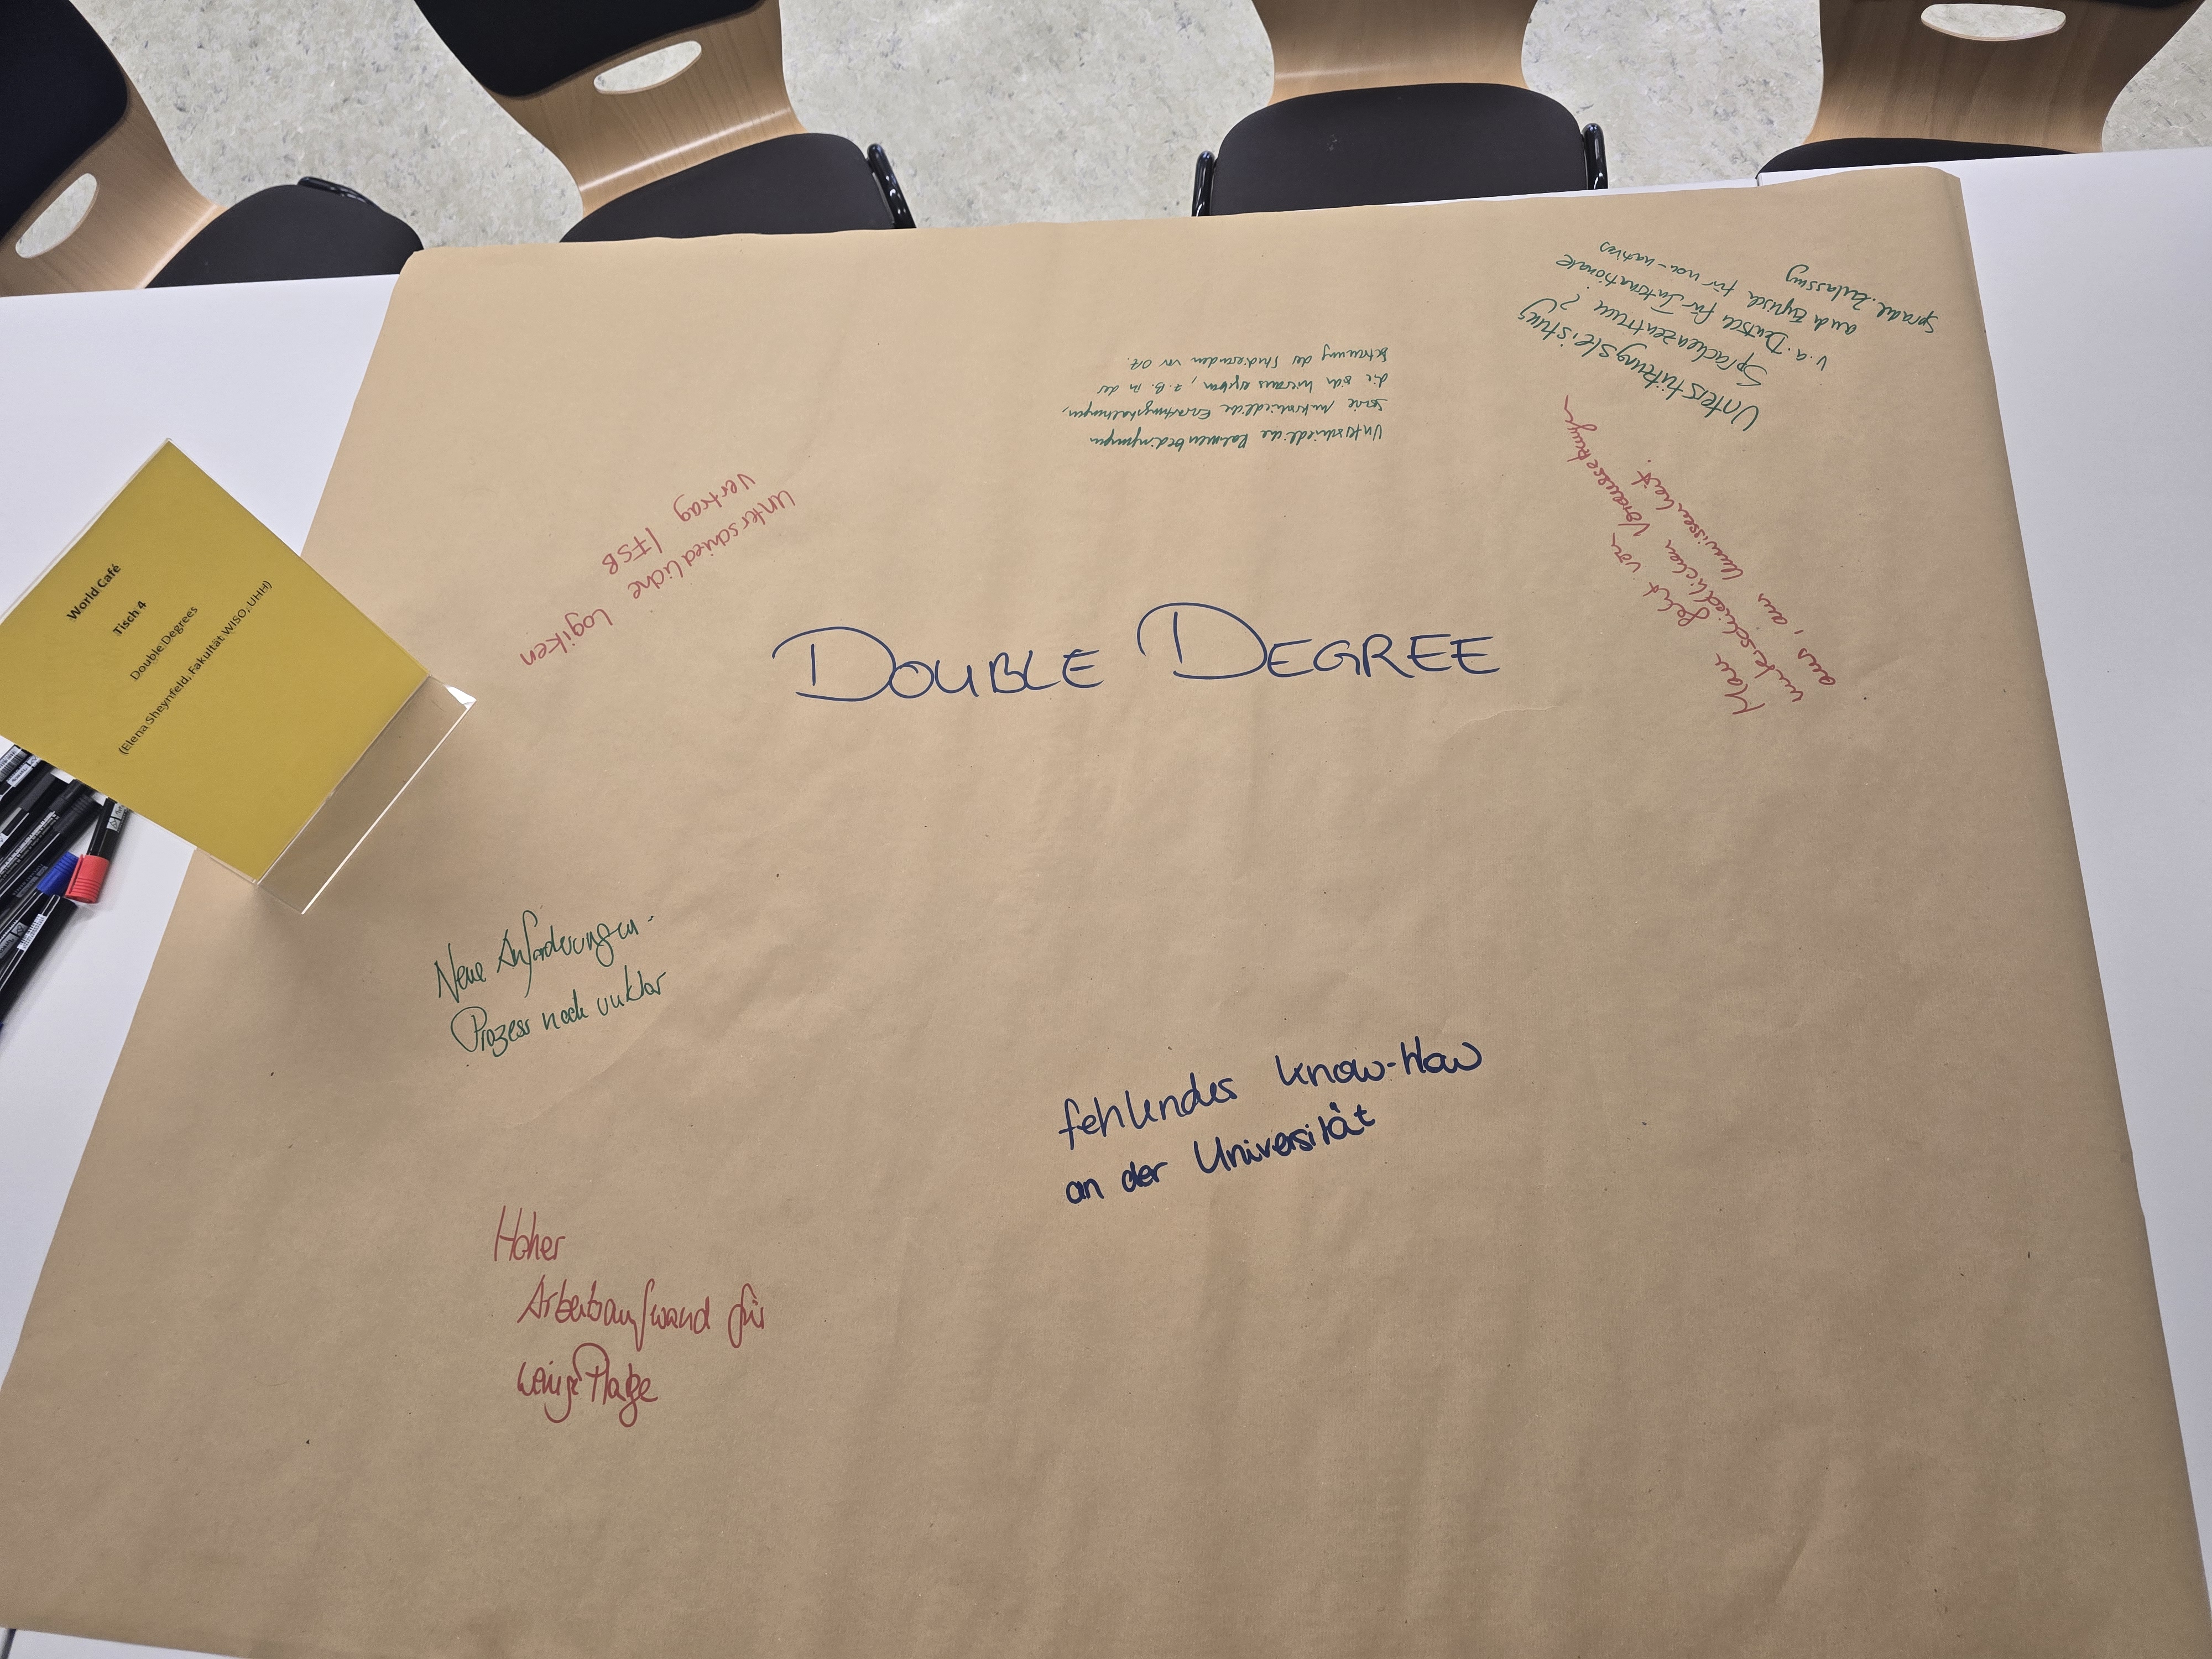 World Café
Tisch 4
Double Degrees
(Elena Sheynfeld, Fakultät WISO, UHH)
DOUBLE DEGREE
Unterschiedliche Logiken
Vertrag / FSB
Unterschiedliche Rahmenbedingungen
sowie unterschiedliche Erwartungshaltungen,
die sich hieraus ergeben, z.B. in der
Betreuung der Studierenden vor Ort.
Unterstützungsleistung
Sprachenzentrum?
v.a. Deutsch für Internationale
auch Englisch für non-natives
sprachl. Zulassung
Man geht von
unterschiedlichen Voraussetzungen
aus, aus Unwissenheit.
Neue Anforderungen -
Prozess noch unklar
fehlendes Know-How
an der Universität
Hoher
Arbeitsaufwand für
wenige Plätze